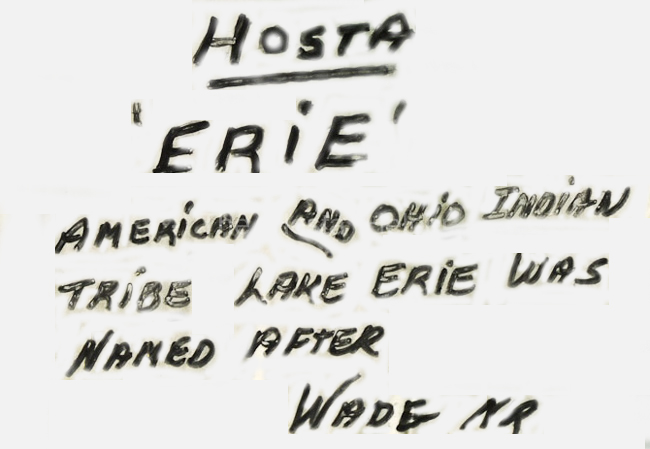 HOSTA
'ERiE'
AMERiCAN AND OHiO INDiAN
TRiBE LAKE ERiE WAS
NAMED AFTER
WADE